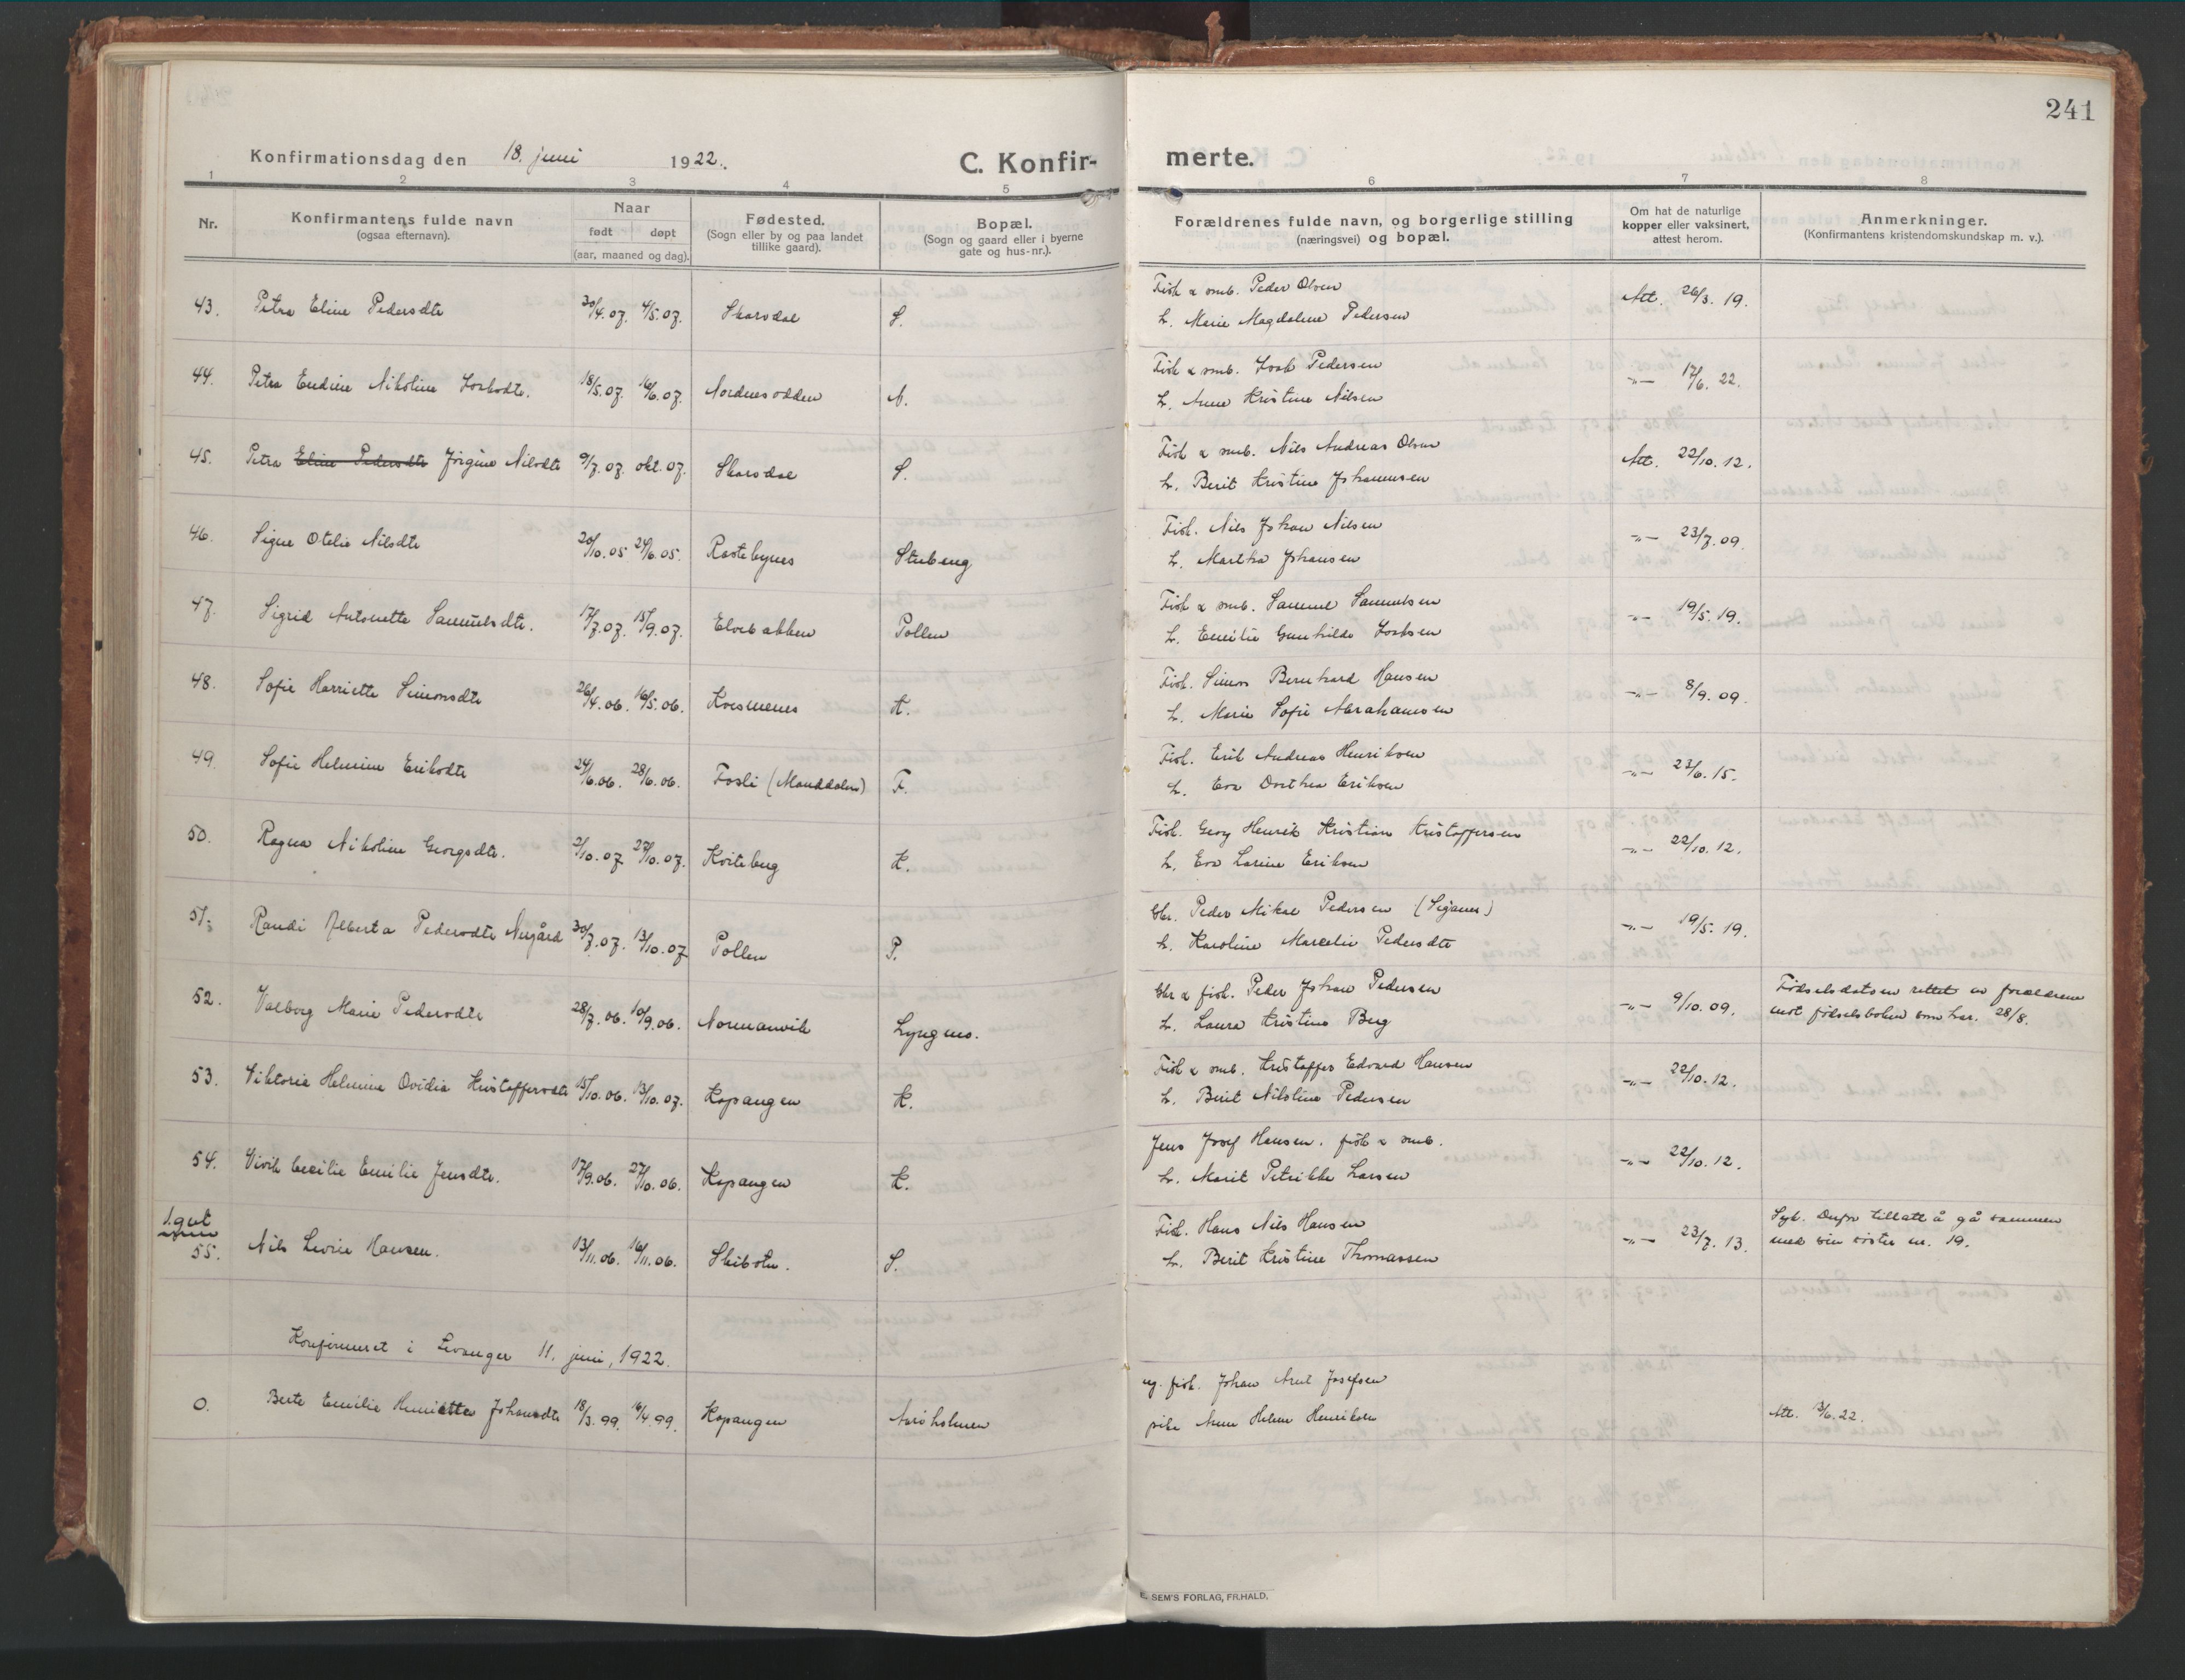 241
Konfirmationsdag den 18. juni 1922.
C. Konfir-
merte.
1 2 3 4 5 6 7 8
Nr.
Konfirmantens fulde navn
(ogsaa efternavn).
Naar
født døpt
(aar, maaned og dag).
Fødested.
(Sogn eller by og paa landet
tillike gaard).
Bopæl.
(Sogn og gaard eller i byerne
gate og hus-nr.).
Forældrenes fulde navn, og borgerlige stilling
(næringsvei) og bopæl.
Om hat de naturlige
kopper eller vaksinert,
attest herom.
Anmerkninger.
(Konfirmantens kristendomskundskap m. v.).
43. Petra Eline Pedersdtr 30/4.07. 4/5.07. Skarsdal S. Fisk & smb. Peder Olsen Att. 26/3. 19.
h. Marie Magdalene Pedersen
44. Petra Endine Nikoline Isaksdtr. 18/5.07. 16/6.07. Nordnesodden N. Fisk & smb. Isak Pedersen -"- 17/6. 22.
h. Anne Kristine Nilsen
45. Petra Eline Pedersdtr Jørgine Nilsdtr 9/7.07. okt. 07. Skarsdal S. Fisk & smb. Nils Andreas Olsen Att. 22/10. 12.
h. Berit Kristine Johannesen
46. Signe Otelie Nilsdtr 20/10.05 24/6.05. Rastebynes Stubeng Fisk. Nils Johan Nilsen -"- 23/7. 09.
h. Martha Johansen
47. Sigrid Antonette Samuelsdtr. 17/7.07. 15/9.07. Elvebakken Pollen Fisk & smb. Samuel Samuelsen -"- 19/5. 19.
h. Emilie Gunhilde Isaksen
48. Sofie Harriette Simonsdtr 26/4.06. 16/5.06. Kvesmenes K. Fisk. Simon Bernhard Hansen -"- 8/9. 09.
h. Marie Sofie Abrahamsen
49. Sofie Helmine Eriksdtr 24/6.06. 28/6.06. Fosli (Manddalen) F. Fisk. Erik Andreas Henriksen -"- 23/6. 15.
h. Eva Dorthea Eriksen
50. Ragna Nikoline Georgsdtr. 2/10.07 27/10.07. Kviteberg K. Fisk. Georg Henrik Kristian Kristoffersen -"- 22/10. 12.
h. Eva Larine Eriksen
51. Randi Alberta Pedersdtr Nygård 30/7.07. 13/10.07 Pollen P. Gbr. Peder Mikal Pedersen -"- 19/5. 19.
h. Karoline Marcelie Pedersdtr
52. Valborg Marie Pedersdtr 28/7.06. 10/9.06. Normanvik Lyngens. Gbr & fisk. Peder Johan Pedersen -"- 9/10. 09. Fødselsdatoen rettet av forældrene
h. Laura Kristine Berg mot fødselsboken som har. 28/8.
53. Viktoria Helmine Ovidia Kristoffersdtr 15/10.06. 13/10.07. Kopangen K. Fisk & smb. Kristoffer Edvard Hansen -"- 22/10. 12.
h. Berit Nilsline Pedersen
54. Vivik Cecilie Emilie Jensdtr. 17/9.06. 27/10.06. Kopangen K. Jens Josef Hansen. fisk & smb. -"- 22/10. 12.
h. Marit Petrikke Larsen
1. gut
55. Nils Levin Hansen. 13/11.06. 16/11.06. Skibotn. S. Fisk. Hans Nils Hansen -"- 23/7. 13. Syk. Derfor tillatt å gå sammen
h. Berit Kristine Thomassen med sin søster nr. 19.
Konfirmeret i Levanger 11. juni, 1922.
0. Berte Emilie Henriette Johansdtr 18/3.99. 16/4.99. Kopangen Aarøholmen ug. fisk. Johan Arnt Josefsen Att. 13/6.22.
pike Anne Helene Henriksen
E. SEM'S FORLAG, FR.HALD.